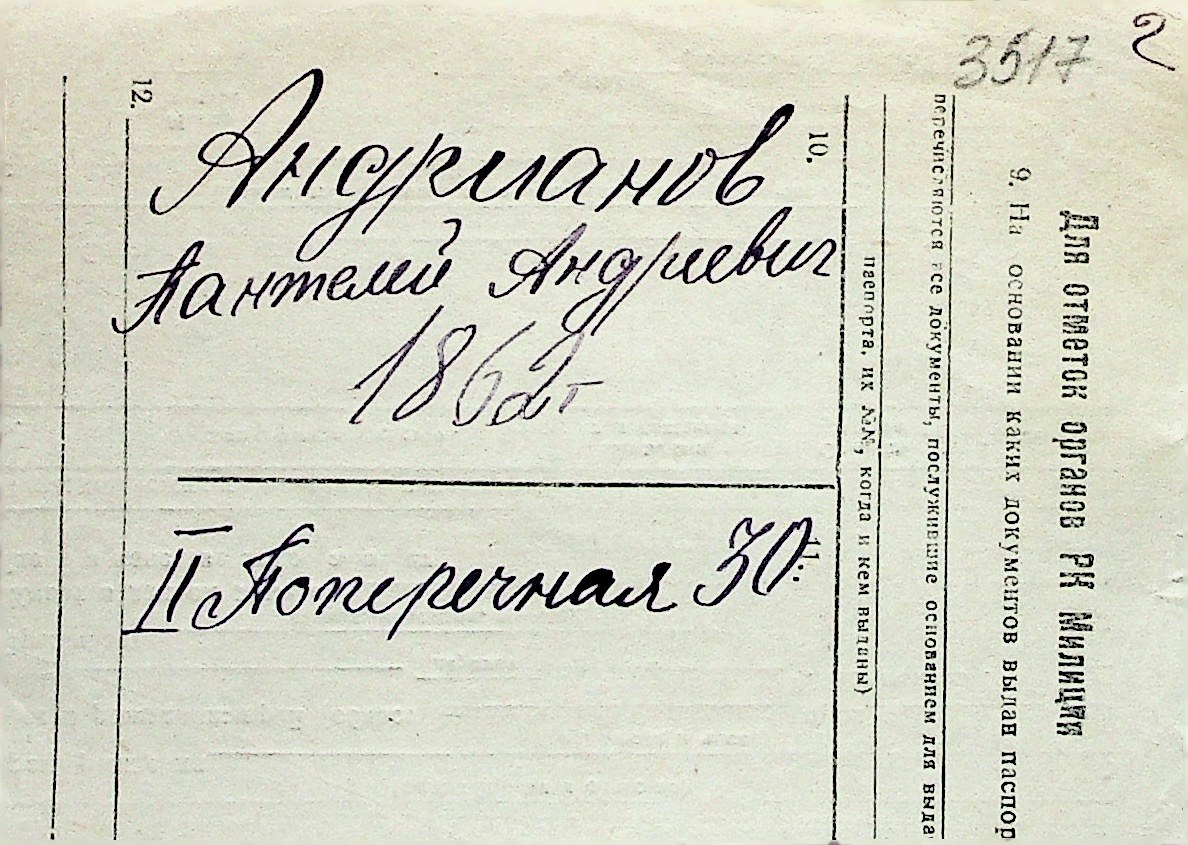 3517 2
Андрианов
Пантелей Андреевич
1862 г
II Поперечная 30
Для отметок органов РК Милиции
9. На основании каких документов выдан паспор
перечисляются все документы, послужившие основанием для выда
паспорта, их №№, когда и кем выданы)
10.
11.
12.